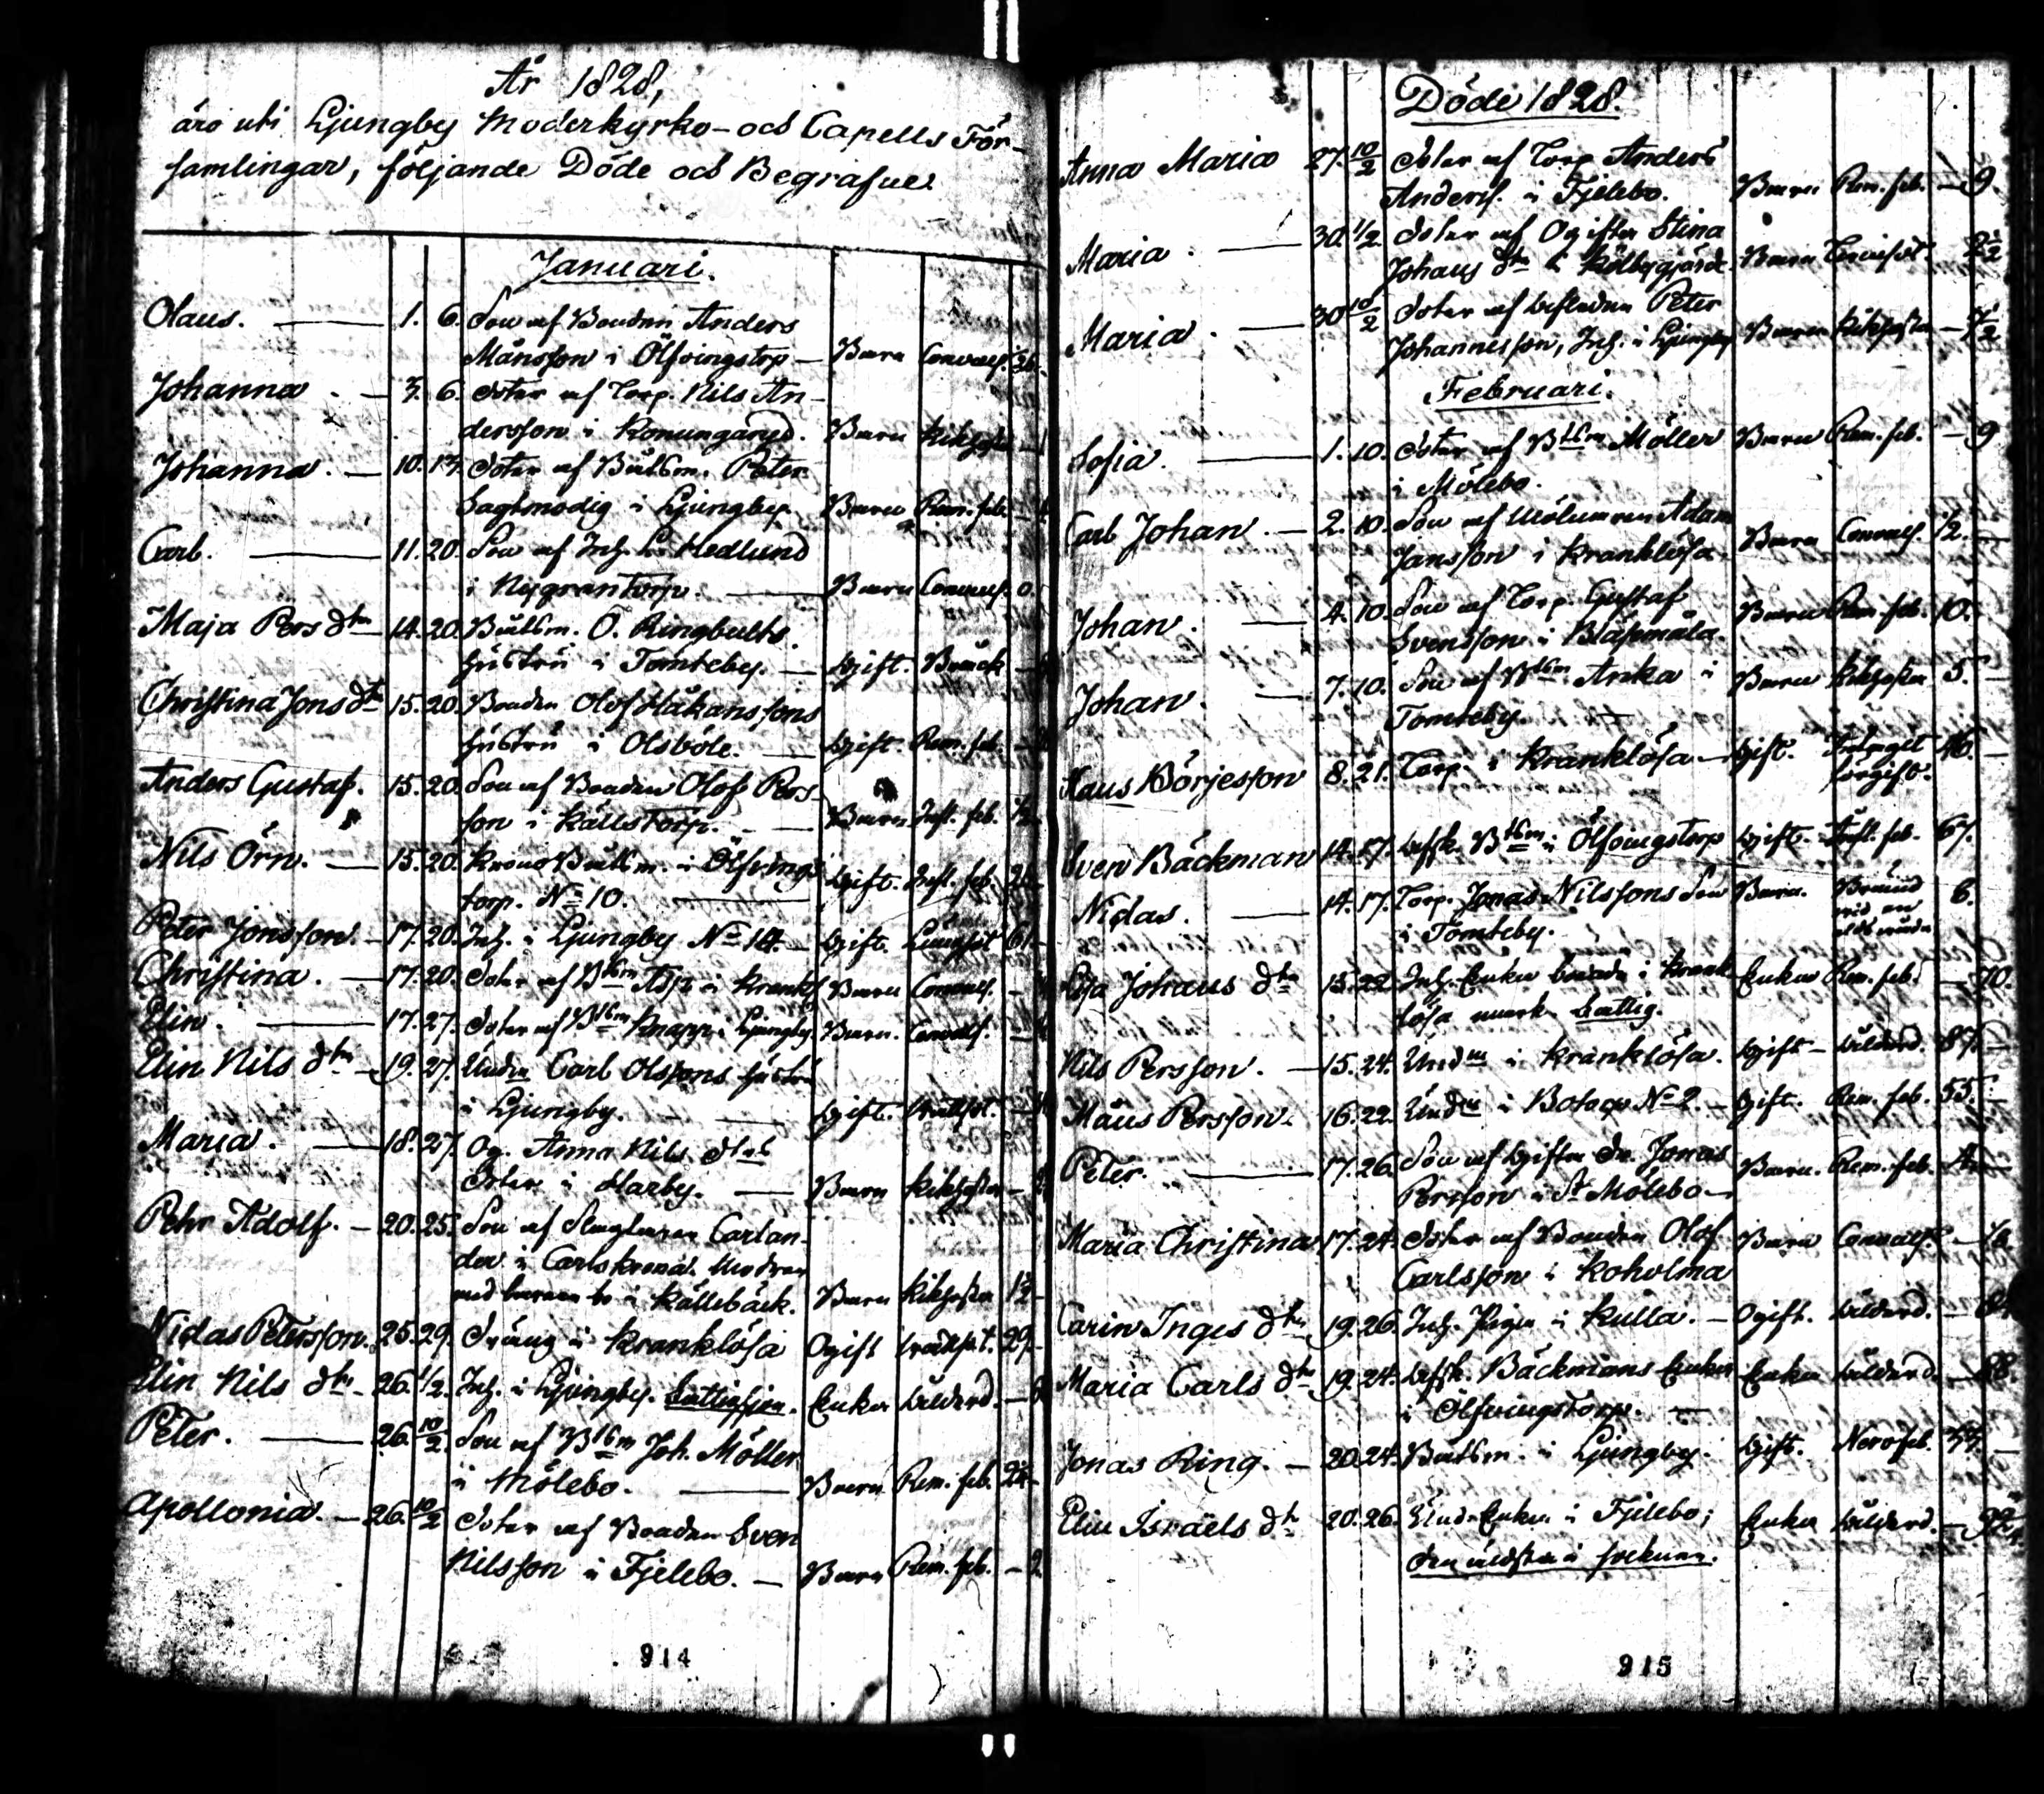 År 1828,
äro uti Ljungby Moderkyrko- och Capells För-
samlingar, följande Döde och Begrafne.
Januari.
Olaus. 1. 6. Son af Bonden Anders
Månsson i Ölfvingstorp Barn Convuls.
Johanna 7. 6. Doter af Torp. Nils An-
dersson i Konungaryd. Barn Kikhosta
Johanna. 10. 13. Doter af Båtsm. Peter
Sagtmodig i Ljungby Barn Rem. feb.
Carl. 11. 20. Son af Inh. Hedlund
i Nygrantorp. Barn Convuls.
Maja Pers dtr 14. 20. Båtsm. O. Ringbults
hustru i Tomteby. Gift. Bråck
Christina Jons dtr 15. 20. Bonden Olof Håkanssons
hustru i Olsböle. Gift. Rem. feb.
Anders Gustaf. 15. 20. Son af Bonden Olof Pers
son i Källstorp. Barn Infl. feb.
Nils Örn. 15. 20. Krono Båtsm. i Ölfvings
torp. No 10. Gift. Infl. feb.
Peter Jonsson. 17. 20. Inh. i Ljungby No 14. Gift. Lungsot 61.
Christina. 17. 20. Doter af Btsm Asp i Krankl Barn Convuls.
Elin. 17. 27. Doter af Btsm Knapp i Ljungby. Barn. Convuls.
Elin Nils dtr 19. 27. Undn Carl Olssons hustru
i Ljungby. Gift.
Maria. 18. 27. Og. Anna Nils dtrs
Doter i Harby. Barn Kikhosta
Pehr Adolf. 20. 25. Son af Carlan-
der i Carlskrona. Modren
med barnen bo i Källebäck. Barn Kikhosta 1½
Niclas Petersson. 25. 29. Dräng i Kranklösa Ogift 29.
Elin Nils dtr 26. 1/2. Inh. i Ljungby. Enka ålderd.
Peter. 26. 10/2 Son af Btsm Joh. Möller
i Mölebo. Barn Rem. feb.
Apollonia. 26. 10/2 Doter af Bonden Sven
Nilsson i Fjelebo. Barn Rem. feb. 2
914
Döde 1828.
Anna Maria 27. 10/2 Doter af Torp. Anders
Anderss. i Fjelebo. Barn Rem. feb. 9.
Maria. 30. 1/2. Doter af Ogifta Stina
Johans dtr i Kölbygärde Barn
Maria. 30 10/2 Doter af Peter
Johannesson, Inh. i Ljungby Barn Kikhosta
Februari.
Sofia. 1. 10. Doter af Btsm Möller Barn Rem. feb. 9
i Mölebo.
Carl Johan. 2. 10. Son af Mölnaren Adam
Jansson i Kranklösa. Barn Convuls. ½.
Johan. 4. 10. Son af Torp. Gustaf
Svensson i Blåsemåla. Barn Rem. feb. 10.
Johan. 7. 10. Son af Btsm Anka i Barn Kikhosta 5.
Tomteby.
Hans Börjesson 8. 21. Torp. i Kranklösa Gift. Intagit 46.
förgift.
Sven Bäckman 14. 17. Afsk. Btsm i Ölfvingstorp Gift. Infl. feb. 67.
Niclas. 14. 17. Torp. Jonas Nilssons Son Barn. Bränd 6.
i Tomteby. vid en
Johans dtr 15. 22. Inh. Enka boende i Krank Enka Rem. feb. 70.
lösa mark.
Nils Persson. 15. 24. Undn i Kranklösa. Gift ålderd. 87.
Måns Persson. 16. 22. Undn i Botorp No 2. Gift. Rem. feb. 55.
Peter. 17. 26. Son af Gifta Dr. Jonas Barn. Rem. feb.
Persson i St Mölebo
Maria Christina 17. 24. Doter af Bonden Olof Barn Convuls.
Carlsson i Koholma
Carin Inges dtr 19. 26. Inh. Pigan i Kulla. Ogift. ålderd.
Maria Carls dtr 19. 24. Afsk. Bäckmans Enka Enka ålderd. 68.
i Ölfvingstorp.
Jonas Ring. 20. 24. Båtsm. i Ljungby. Gift. Nervfeb.
Elin Israels dtr 20. 26. Und. Enkan i Fjelebo; Enka ålderd. 92
den äldsta i socknen.
915